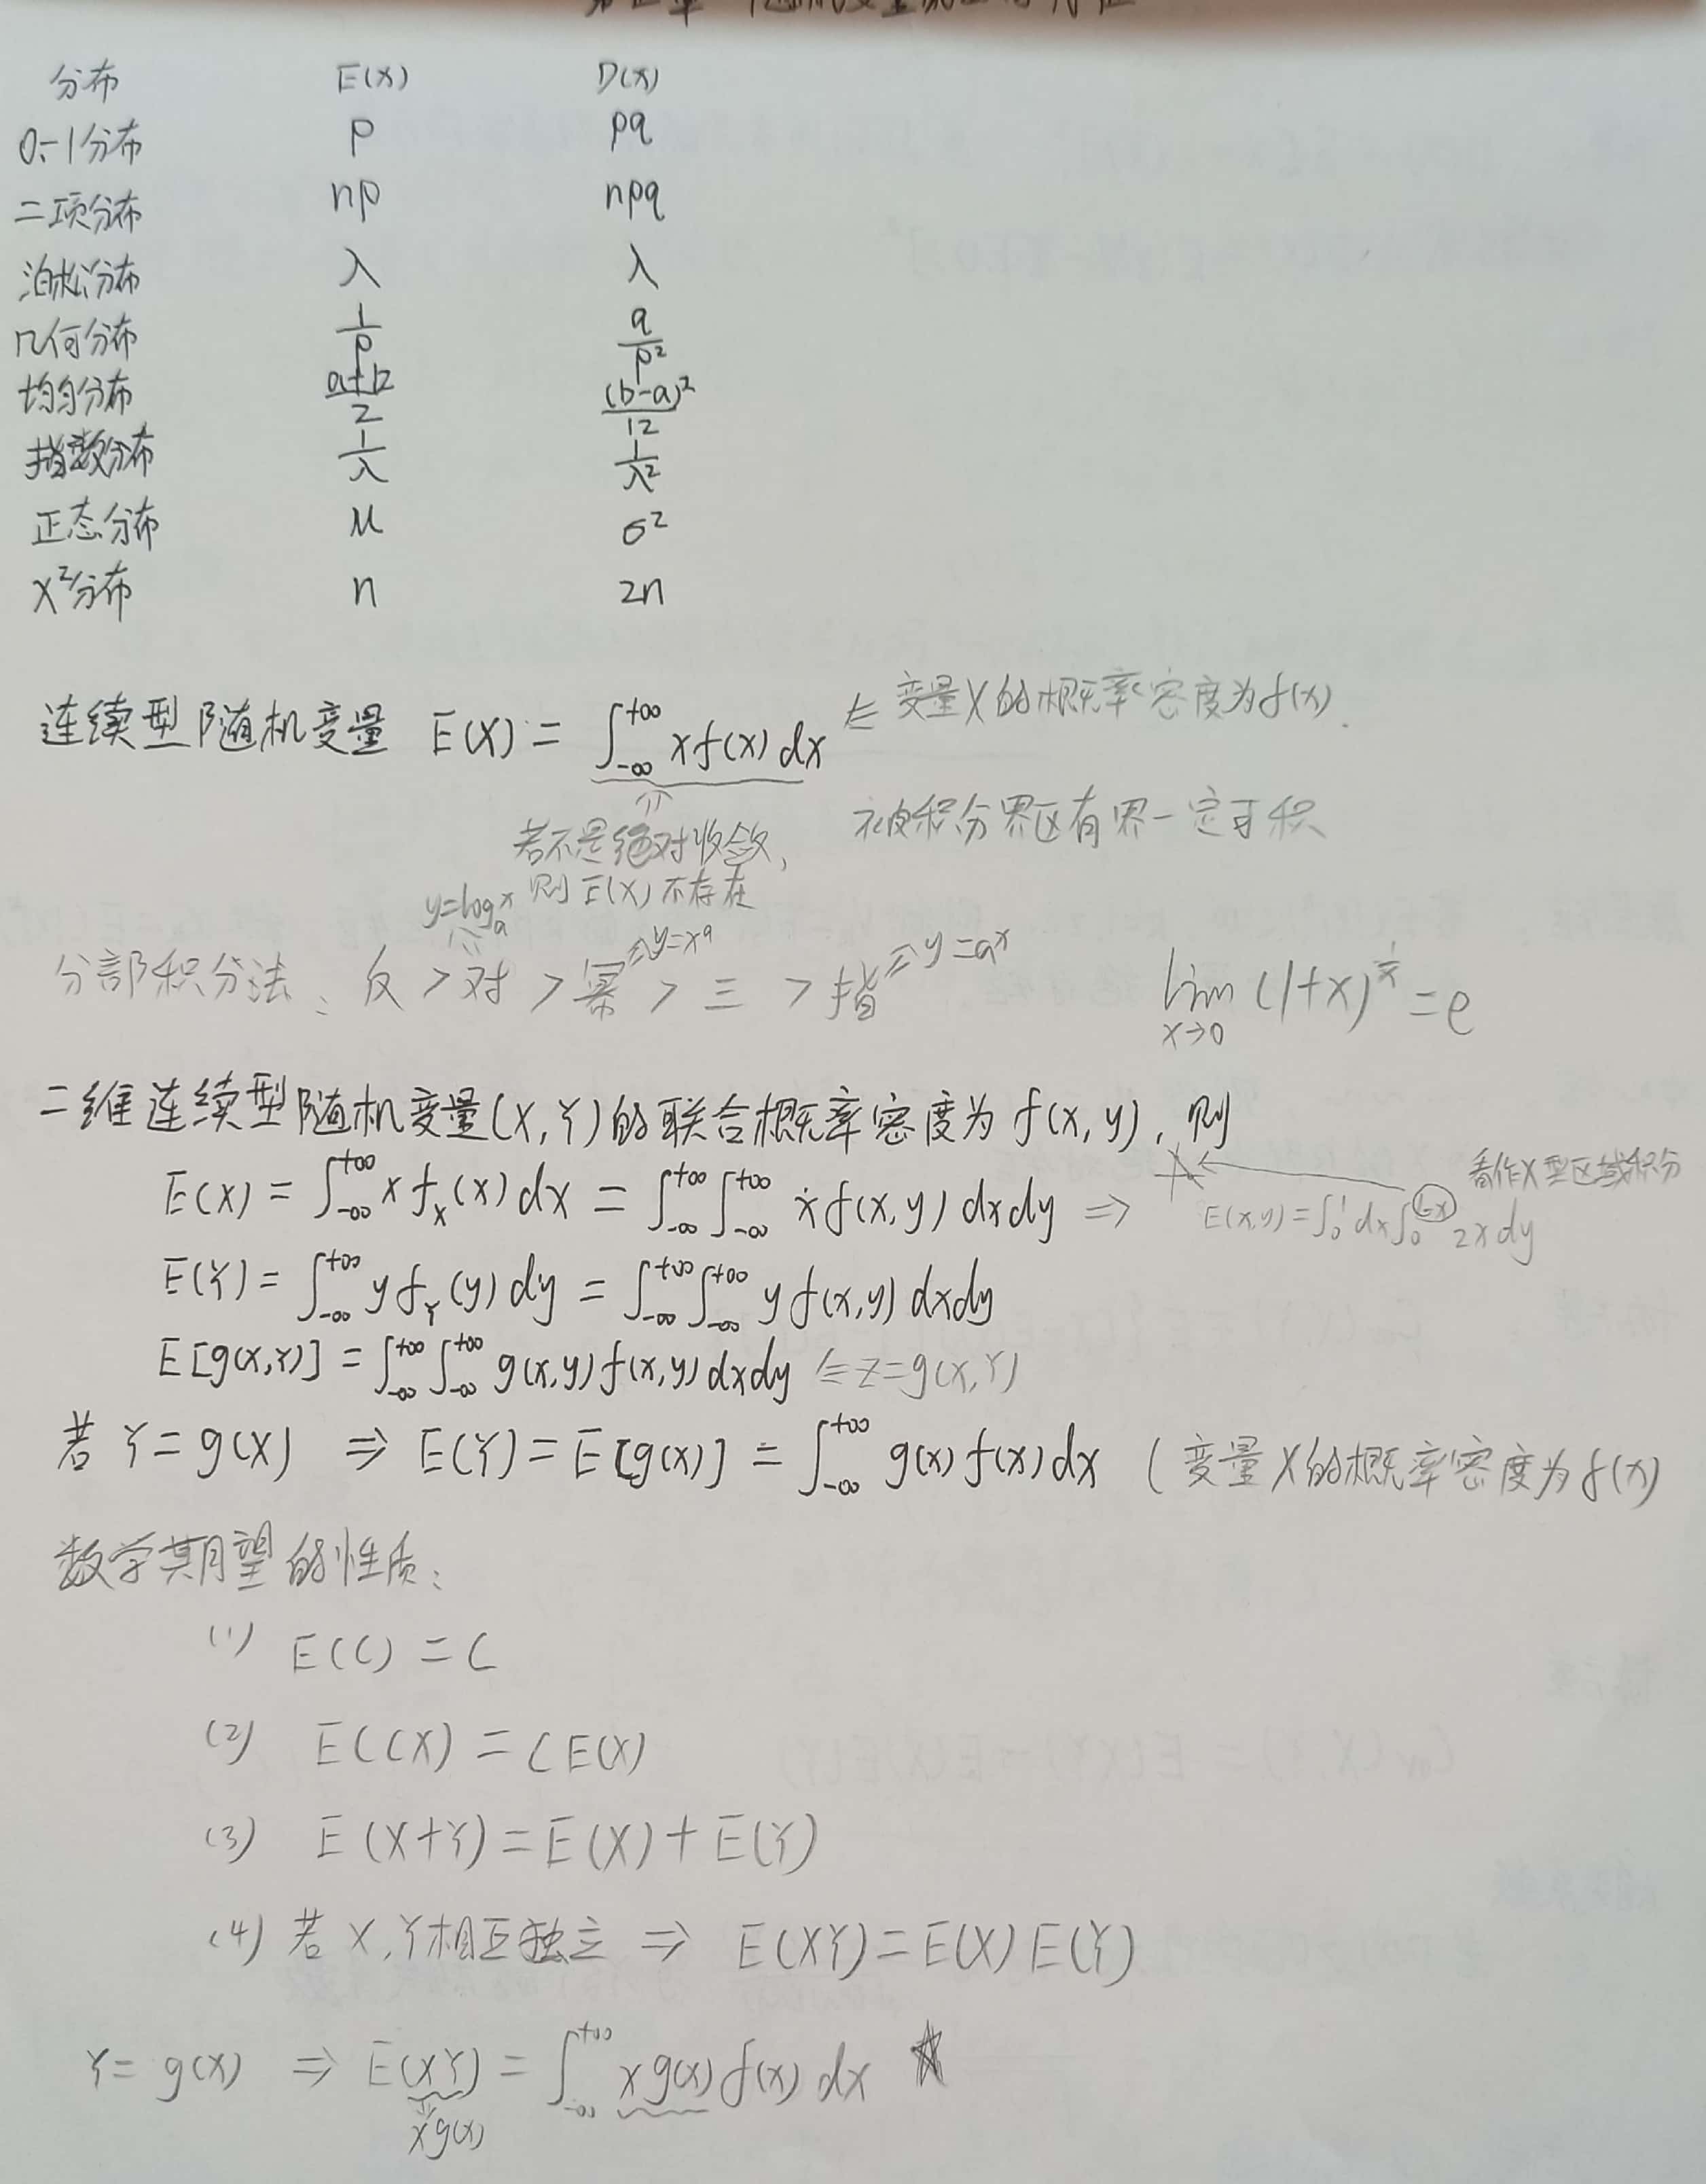 分布 E(X) D(X)
0-1分布 p pq
二项分布 np npq
泊松分布 λ λ
几何分布 1/p q/p²
均匀分布 (a+b)/2 (b-a)²/12
指数分布 1/λ 1/λ²
正态分布 μ σ²
χ²分布 n 2n
连续型随机变量 E(X) = ∫_{-∞}^{+∞} x f(x) dx ⇐ 变量X的概率密度为f(x).
若不是绝对收敛, 被积分界区有界一定可积
则E(X)不存在
y=logₐx y=xᵃ y=aˣ
分部积分法: 反 > 对 > 幂 > 三 > 指
lim_{x→0} (1+x)^{1/x} = e
二维连续型随机变量(X,Y)的联合概率密度为f(x,y), 则
E(X) = ∫_{-∞}^{+∞} x f_X(x) dx = ∫_{-∞}^{+∞} ∫_{-∞}^{+∞} x f(x,y) dxdy ⇒ 看作X型区域积分
E(x,y) = ∫₀¹ dx ∫₀ 2x dy
E(Y) = ∫_{-∞}^{+∞} y f_Y(y) dy = ∫_{-∞}^{+∞} ∫_{-∞}^{+∞} y f(x,y) dxdy
E[g(X,Y)] = ∫_{-∞}^{+∞} ∫_{-∞}^{+∞} g(x,y) f(x,y) dxdy ⇐ Z=g(X,Y)
若 Y = g(X) ⇒ E(Y) = E[g(x)] = ∫_{-∞}^{+∞} g(x) f(x) dx (变量X的概率密度为f(x)
数学期望的性质:
(1) E(C) = C
(2) E(CX) = CE(X)
(3) E(X+Y) = E(X) + E(Y)
(4) 若X,Y相互独立 ⇒ E(XY) = E(X)E(Y)
Y = g(X) ⇒ E(XY) = ∫_{-∞}^{+∞} x g(x) f(x) dx ☆
xg(x)